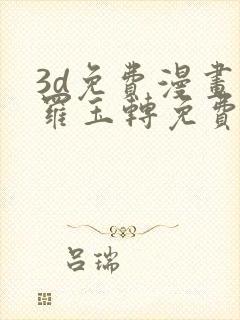 3d免費漫畫
羅玉轉免費
吕瑞